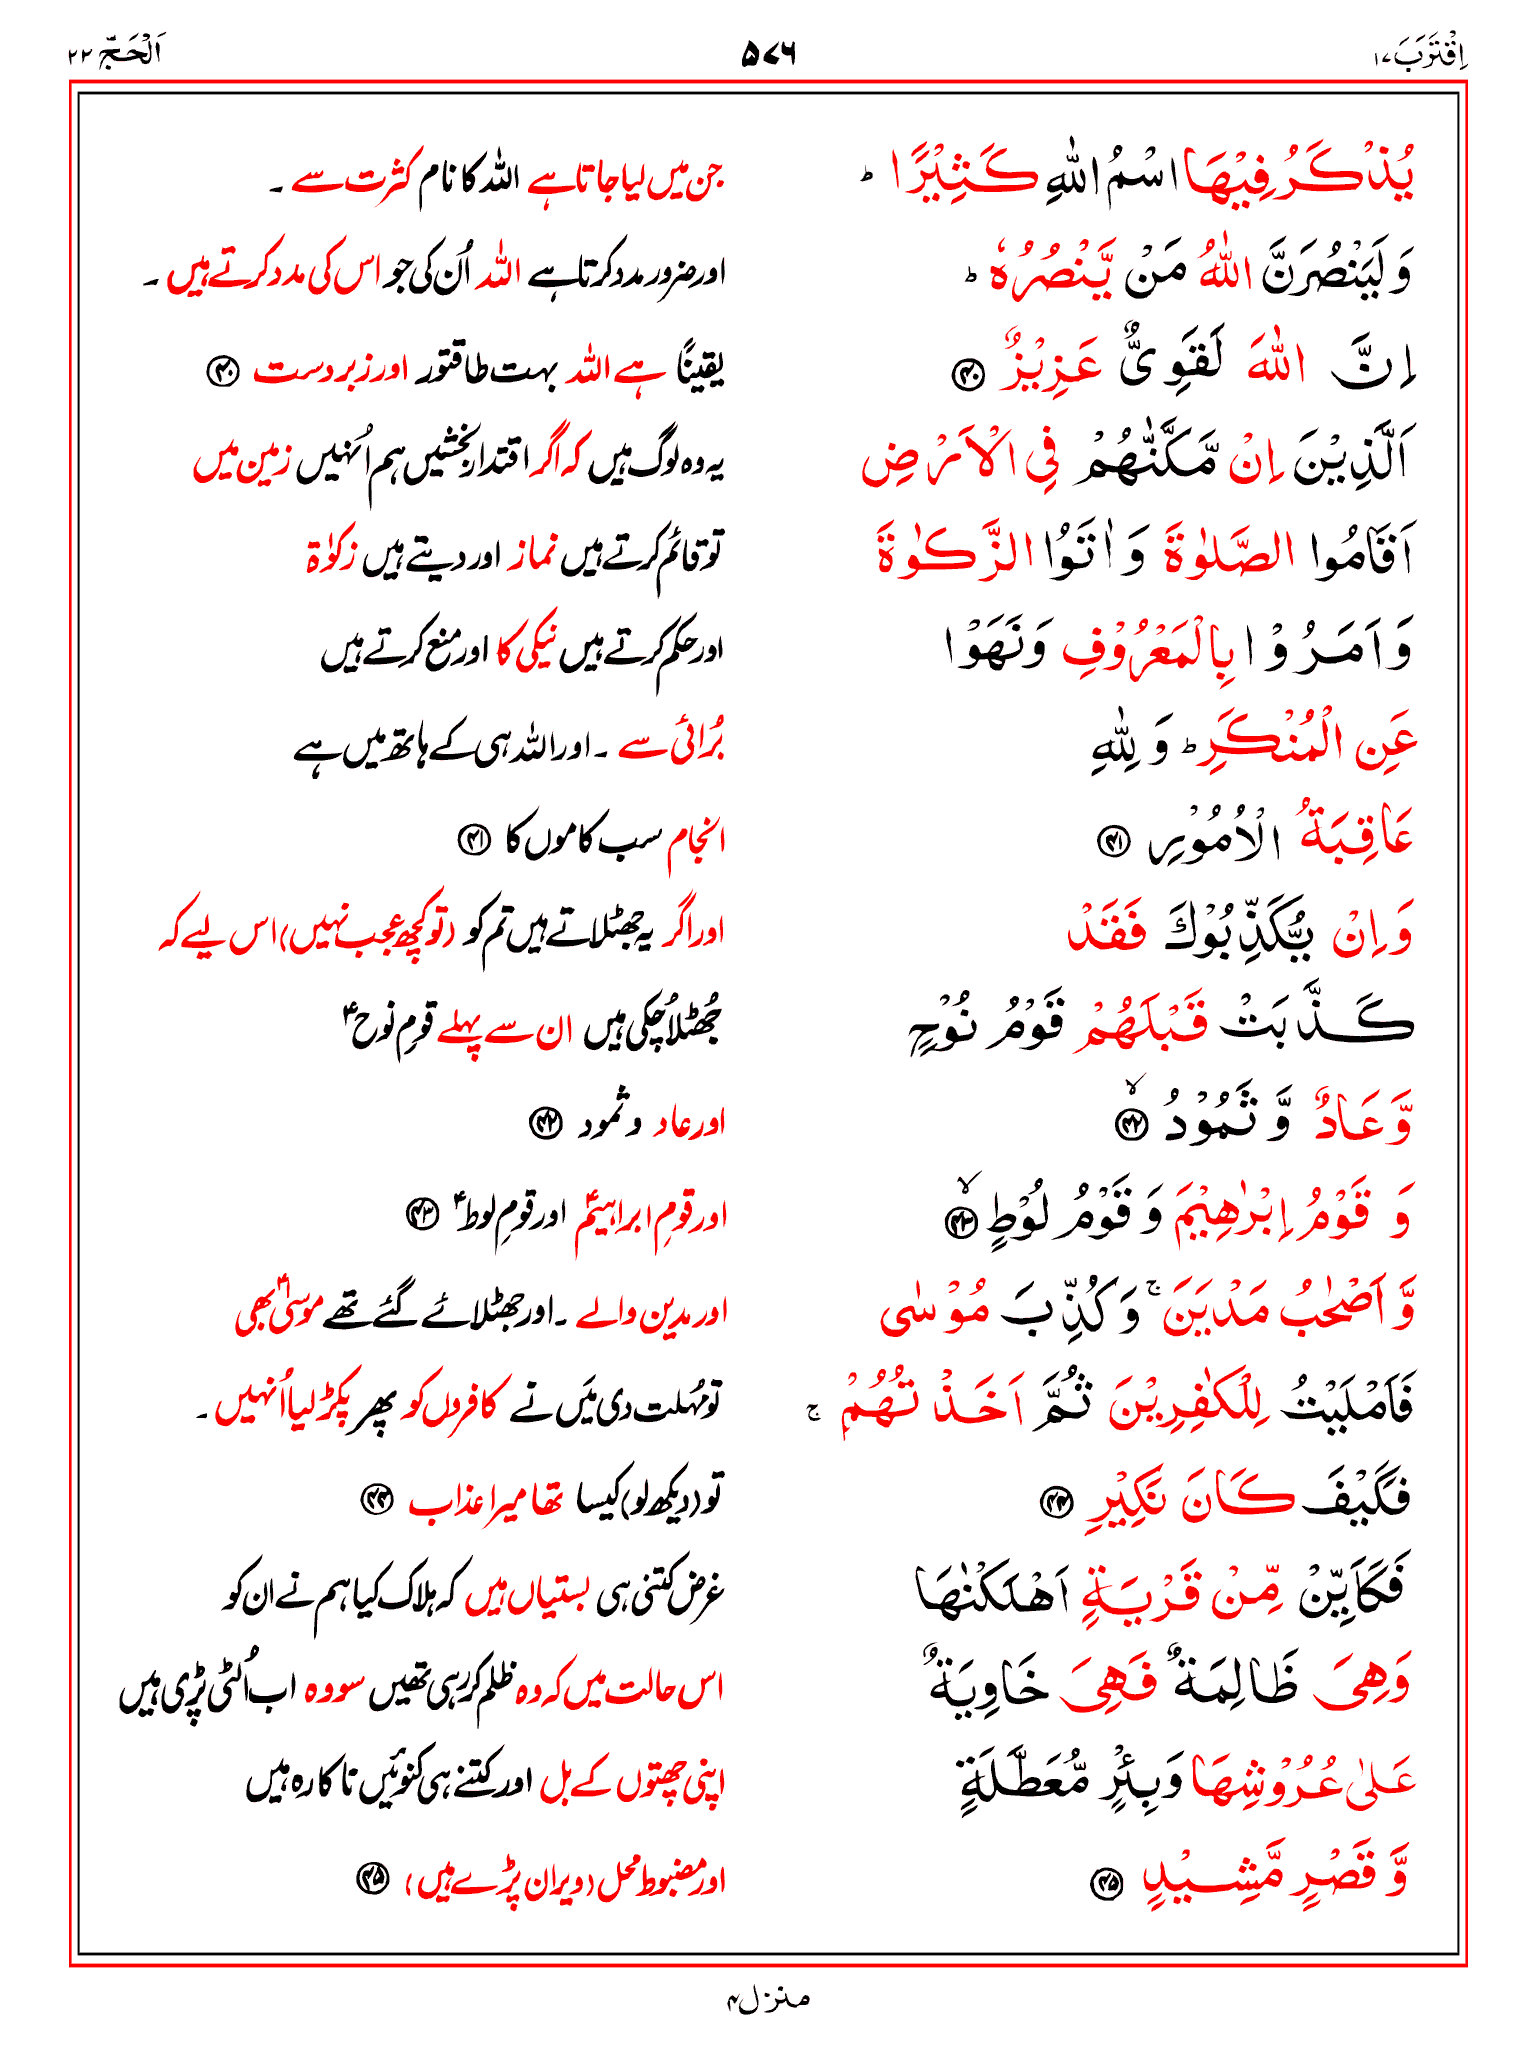 اِقْتَرَبَ ١٧
٥٧٦
اَلْحَجّ ٢٢
يُذْكَرُ فِيْهَا اسْمُ اللّٰهِ كَثِيْرًا ؕ
جن میں لیا جاتا ہے اللہ کا نام کثرت سے ۔
وَلَيَنْصُرَنَّ اللّٰهُ مَنْ يَّنْصُرُهٗ ؕ
اور ضرور مدد کرتا ہے اللہ اُن کی جو اس کی مدد کرتے ہیں ۔
اِنَّ اللّٰهَ لَقَوِىٌّ عَزِيْزٌ ۴۰
یقینًا ہے اللہ بہت طاقتور اور زبردست ۴۰
اَلَّذِيْنَ اِنْ مَّكَّنّٰهُمْ فِى الْاَرْضِ
یہ وہ لوگ ہیں کہ اگر اقتدار بخشیں ہم اُنہیں زمین میں
اَقَامُوا الصَّلٰوةَ وَ اٰتَوُا الزَّكٰوةَ
تو قائم کرتے ہیں نماز اور دیتے ہیں زکوٰۃ
وَ اَمَرُوْا بِالْمَعْرُوْفِ وَنَهَوْا
اور حکم کرتے ہیں نیکی کا اور منع کرتے ہیں
عَنِ الْمُنْكَرِ ؕ وَ لِلّٰهِ
بُرائی سے ۔ اور اللہ ہی کے ہاتھ میں ہے
عَاقِبَةُ الْاُمُوْرِ ۴۱
انجام سب کاموں کا ۴۱
وَاِنْ يُّكَذِّبُوْكَ فَقَدْ
اور اگر یہ جھٹلاتے ہیں تم کو (تو کچھ عجب نہیں) اس لیے کہ
كَذَّبَتْ قَبْلَهُمْ قَوْمُ نُوْحٍ
جُھٹلا چُکی ہیں ان سے پہلے قومِ نوحؑ
وَّعَادٌ وَّ ثَمُوْدُ ۙ ۴۲
اور عاد و ثمود ۴۲
وَ قَوْمُ اِبْرٰهِيْمَ وَ قَوْمُ لُوْطٍ ۙ ۴۳
اور قومِ ابراہیمؑ اور قومِ لوطؑ ۴۳
وَّ اَصْحٰبُ مَدْيَنَ ۚ وَ كُذِّبَ مُوْسٰى
اور مدین والے ۔ اور جھٹلائے گئے تھے موسیٰؑ بھی
فَاَمْلَيْتُ لِلْكٰفِرِيْنَ ثُمَّ اَخَذْتُهُمْ ۚ
تو مُہلت دی مَیں نے کافروں کو پھر پکڑ لیا اُنہیں ۔
فَكَيْفَ كَانَ نَكِيْرِ ۴۴
تو (دیکھ لو) کیسا تھا میرا عذاب ۴۴
فَكَاَيِّنْ مِّنْ قَرْيَةٍ اَهْلَكْنٰهَا
غرض کتنی ہی بستیاں ہیں کہ ہلاک کیا ہم نے ان کو
وَهِىَ ظَالِمَةٌ فَهِىَ خَاوِيَةٌ
اس حالت میں کہ وہ ظلم کر رہی تھیں سو وہ اب اُلٹی پڑی ہیں
عَلٰى عُرُوْشِهَا وَبِئْرٍ مُّعَطَّلَةٍ
اپنی چھتوں کے بل اور کتنے ہی کنوئیں ناکارہ ہیں
وَّ قَصْرٍ مَّشِيْدٍ ۴۵
اور مضبوط محل (ویران پڑے ہیں) ۴۵
منزل ۴